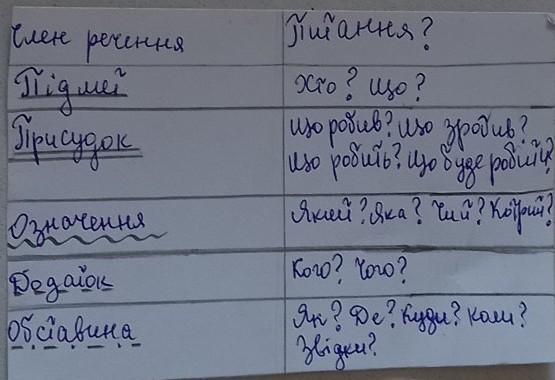 Член речення Питання?
Підмет Хто? Що?
Присудок Що робив? Що зробив?
Що робить? Що буде робити?
Означення Який? Яка? Чий? Котрий?
Додаток Кого? Чого?
Обставина Як? Де? Куди? Коли?
Звідки?